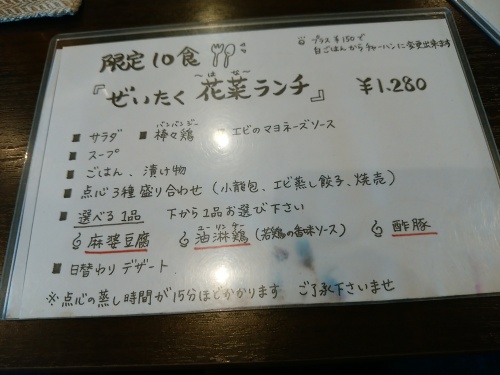 プラス¥150で
白ごはんからチャーハンに変更出来ます
限定10食
『ぜいたく 花菜ランチ』 ¥1.280
サラダ 棒々鶏 バンバンジー エビのマヨネーズソース
スープ
ごはん、漬け物
点心3種盛り合わせ(小籠包、エビ蒸し餃子、焼売)
選べる1品 下から1品お選び下さい
麻婆豆腐 油淋鶏 ユーリンチー (若鶏の香味ソース) 酢豚
日替わりデザート
※点心の蒸し時間が15分ほどかかります ご了承下さいませ